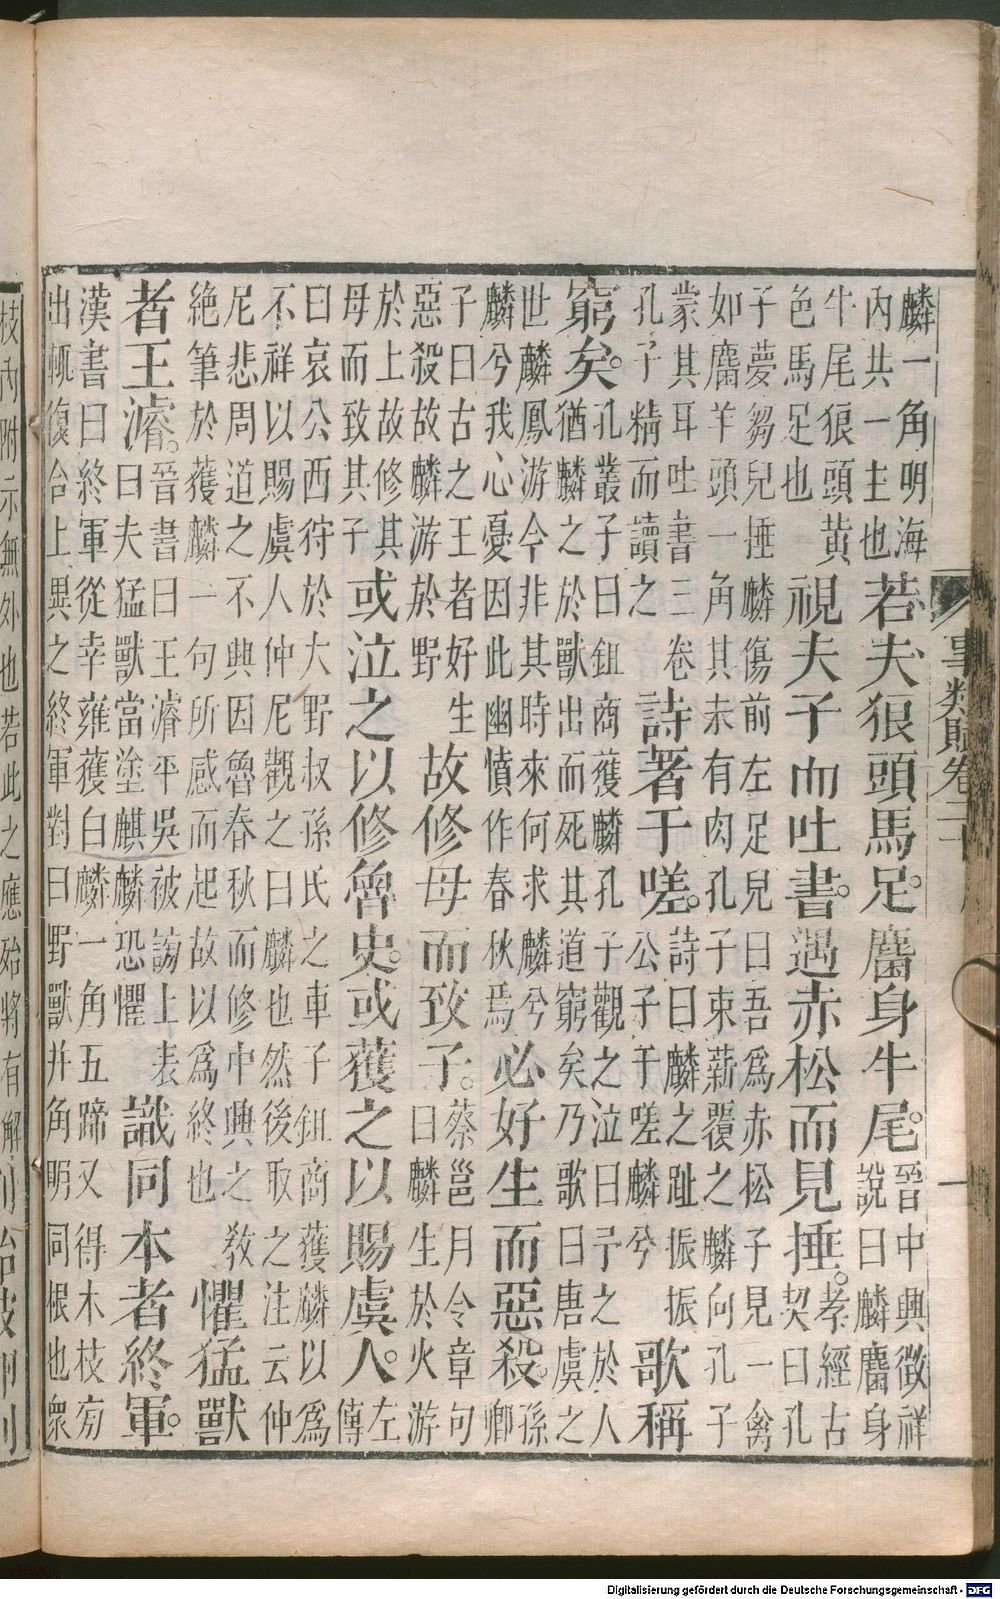 事類賦卷二十
一
麟一角明海
內共一主也
若夫狼頭馬足。麕身牛尾。
晉中興徵祥
說曰麟麕身
牛尾狼頭黃
色馬足也
視夫子而吐書。遇赤松而見捶。
孝經古
契曰孔
子夢芻兒捶麟傷前左足兒曰吾為赤松子見一禽
如麕羊頭一角其末有肉孔子束薪覆之麟向孔子
蒙其耳吐書三卷
孔子精而讀之
詩著于嗟。
詩曰麟之趾振振
公子于嗟麟兮
歌稱
窮矣。
孔叢子曰鉏商獲麟孔子觀之泣曰予之於人
猶麟之於獸出而死其道窮矣乃歌曰唐虞之
世麟鳳游今非其時來何求麟兮
麟兮我心憂因此幽憤作春秋焉
必好生而惡殺。
孫
卿
子曰古之王者好生
惡殺故麟游於野
故修母而致子。
蔡邕月令章句
曰麟生於火游
於上故修其
母而致其子
或泣之以修魯史。或獲之以賜虞人。
左
傳
曰哀公西狩於大野叔孫氏之車子鉏商獲麟以為
不祥以賜虞人仲尼觀之曰麟也然後取之注云仲
尼悲周道之不興因魯春秋而修中興之教
絕筆於獲麟一句所感而起故以為終也
懼猛獸
者王濬。
晉書曰王濬平吳被謗上表
曰夫猛獸當塗麒麟恐懼
識同本者終軍。
漢書曰終軍從幸雍獲白麟一角五蹄又得木枝旁
出輒復合上異之終軍對曰野獸并角明同根也衆
枝內附示無外也若此之應殆將有解
Digitalisierung gefördert durch die Deutsche Forschungsgemeinschaft - DFG